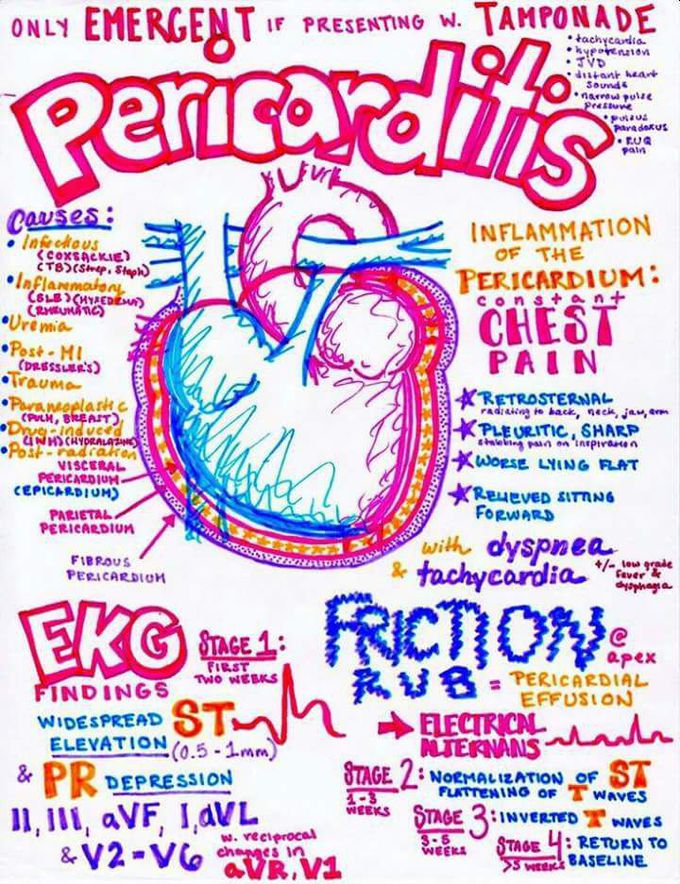 ONLY EMERGENT IF PRESENTING W. TAMPONADE
• tachycardia
• hypotension
• JVD
• distant heart
sounds
• narrow pulse
pressure
• pulsus
paradoxus
• RUQ
pain
Pericarditis
Causes:
• Infectious
(COXSACKIE)
(TB) (Strep, Staph)
• Inflammatory
(RHEUMATIC)
• Uremia
• Post-MI
(DRESSLER'S)
• Trauma
• Paraneoplastic
(PULM, BREAST)
• Drug-induced
(INH) (HYDRALAZINE)
• Post-radiation
VISCERAL
PERICARDIUM
(EPICARDIUM)
PARIETAL
PERICARDIUM
FIBROUS
PERICARDIUM
INFLAMMATION
OF THE
PERICARDIUM:
constant
CHEST
PAIN
RETROSTERNAL
radiating to back, neck, jaw, arm
PLEURITIC, SHARP
stabbing pain on inspiration
WORSE LYING FLAT
RELIEVED SITTING
FORWARD
with dyspnea
& tachycardia
+/- low grade
fever &
dysphagia
EKG
FINDINGS
STAGE 1:
FIRST
TWO WEEKS
WIDESPREAD ST
ELEVATION (0.5-1mm)
& PR DEPRESSION
II, III, aVF, I, aVL
& V2-V6
w. reciprocal
changes in
aVR, V1
FRICTION
RUB
@
apex
= PERICARDIAL
EFFUSION
ELECTRICAL
ALTERNANS
STAGE 2: NORMALIZATION OF ST
FLATTENING OF T WAVES
1-3
WEEKS
STAGE 3: INVERTED T WAVES
3-5
WEEKS
STAGE 4: RETURN TO
BASELINE
>5 WEEKS